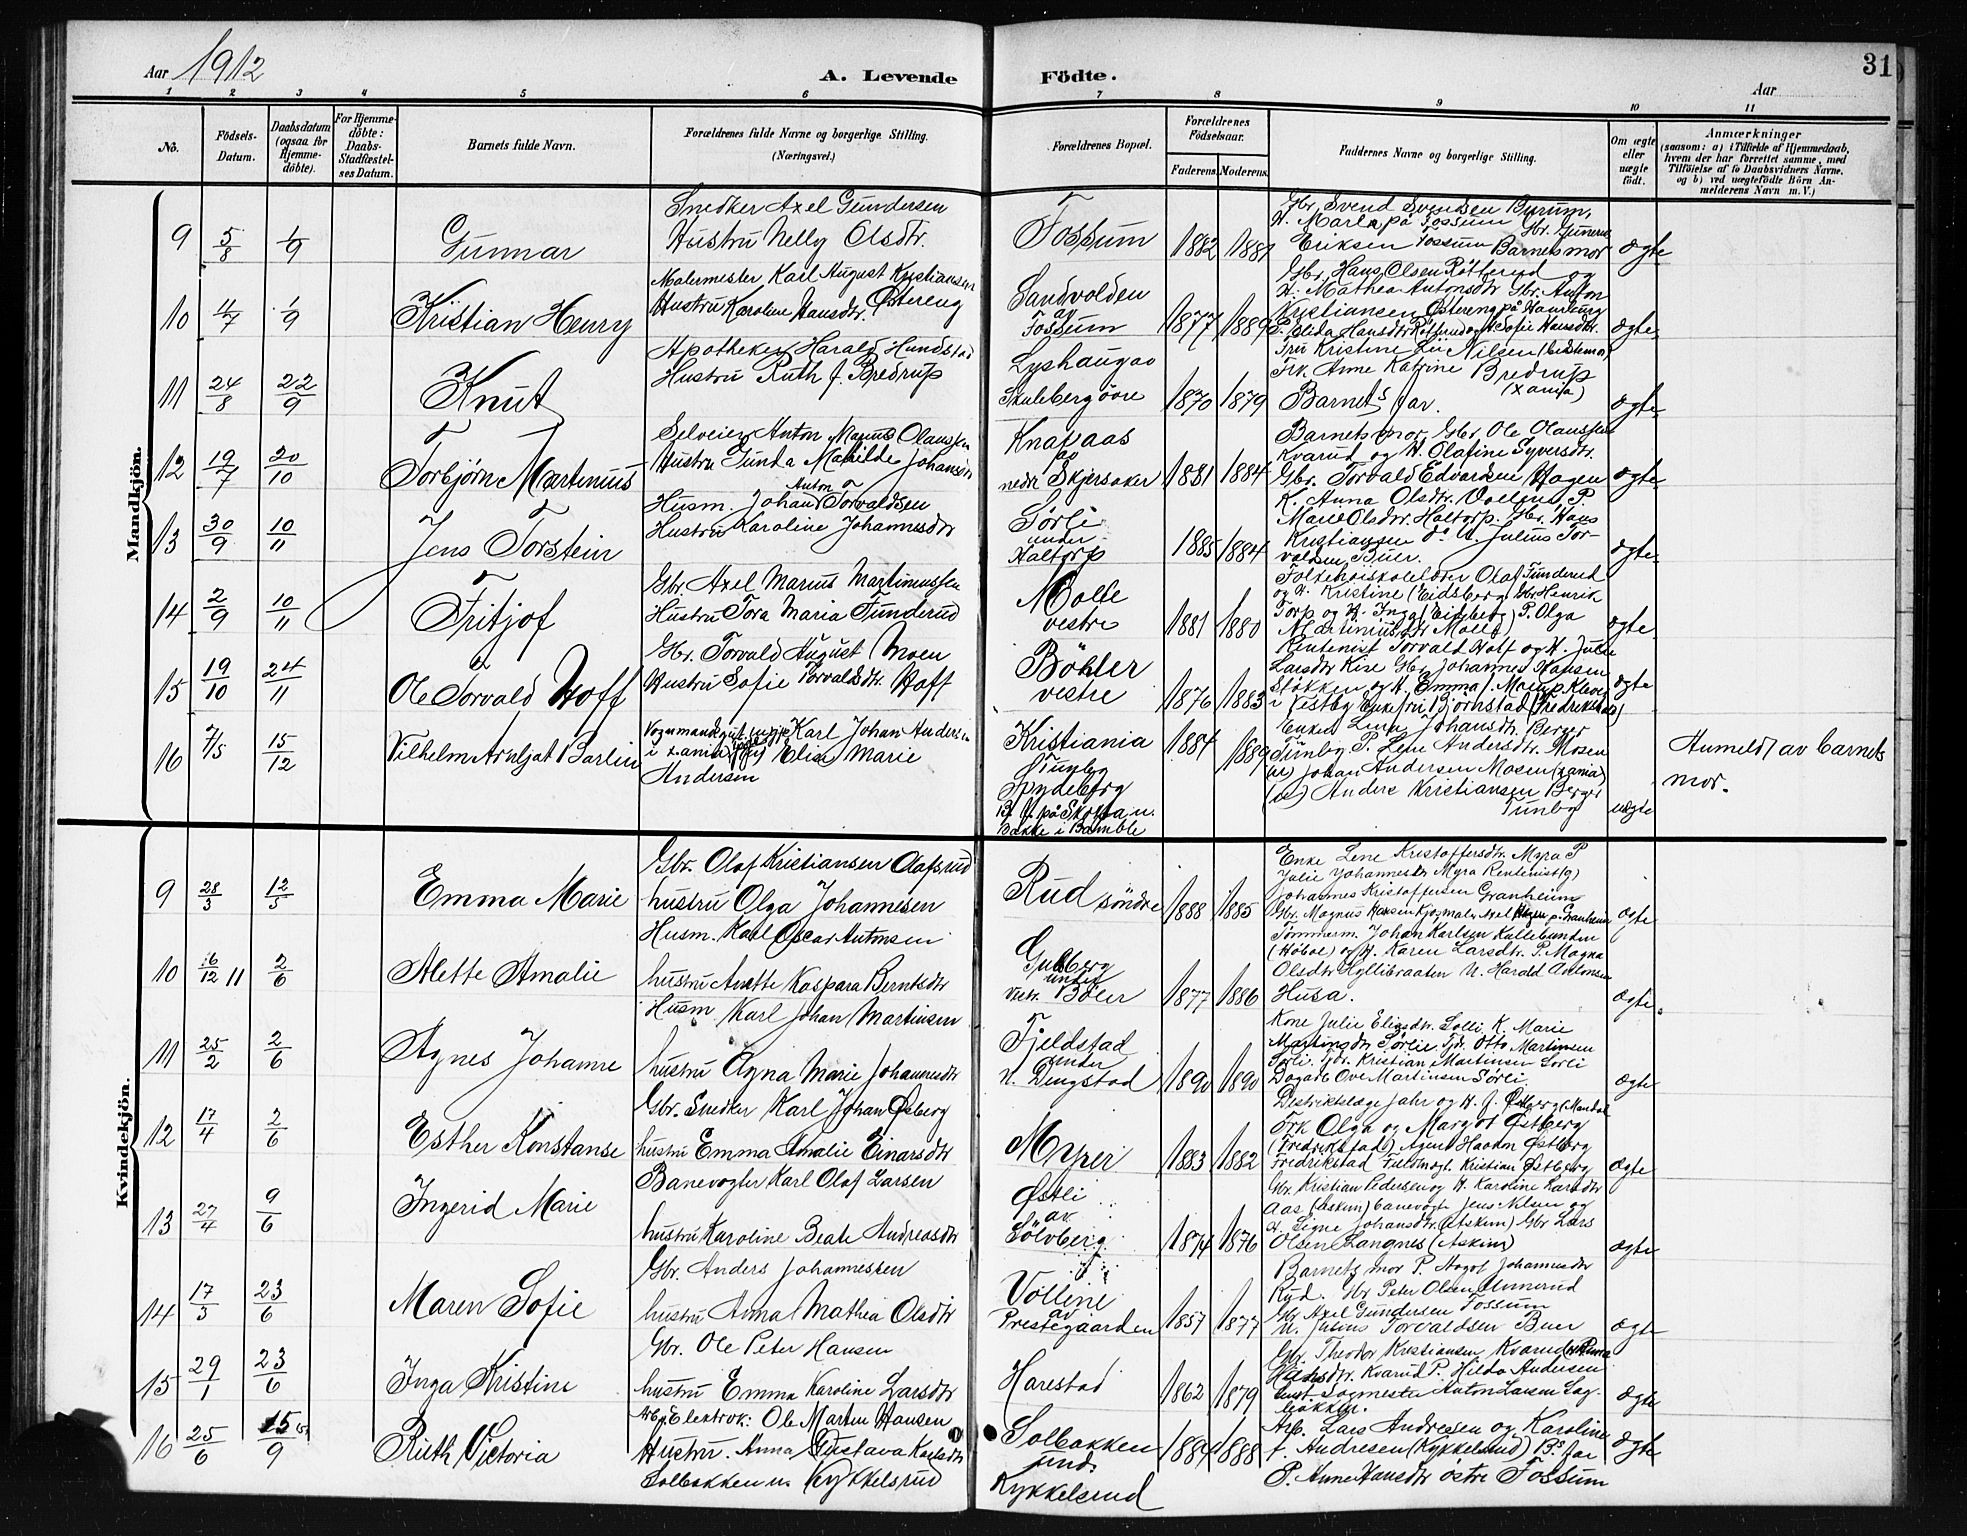 Aar 1912
A. Levende Födte.
31
Aar
1 2 3 4 5 6 7 8 9 10 11
No.
Födsels-Datum.
Daabsdatum (ogsaa for Hjemme-döbte).
For Hjemme-döbte: Daabs-Stadfæstel-ses Datum.
Barnets fulde Navn.
Forældrenes fulde Navne og borgerlige Stilling. (Næringsvei.)
Forældrenes Bopæl.
Forældrenes Födselsaar.
Faderens. Moderens.
Faddernes Navne og borgerlige Stilling.
Om ægte eller uægte födt.
Anmærkninger (saasom: a) i Tilfælde af Hjemmedaab, hvem der har forrettet samme, med Tilföielse af to Daabsvidners Navne, og b) ved uægtefödte Börn Anmelderens Navn m. V.)
Mandkjön.
9 5/8 1/9 Gunnar
Snedker Axel Gundersen
Hustru Nelly Olsdtr.
Fossum 1882 1881
Gbr. Svend Svendsen
på Fossum Gbr.
Eriksen Fossum Barnets mor
ægte
10 4/7 1/9 Kristian Henry
Malermester Karl August Kristiansen
Hustru Karoline Hansdtr. Östereng
Sandvolden
av
Fossum 1877 1889
Gbr. Hans Olsen Rötterud og
H. Mathea Antonsdtr Gbr. Anton
Kristiansen Östereng på
Hansdtr Rötterud og Sofie Hansdtr.
ægte
11 24/8 22/9 Knut
Apotheker Harald Hundstad
Hustru Ruth f. Bredrup
Lyshaug av
Skuleberg övre 1870 1879
Fru Kristine Nilsen
Frk. Anne Katrine Bredrup
(xania)
Barnets far.
ægte
12 19/7 20/10 Torbjörn Martenius
Selveier Anton Magnus Olaussen
Hustru Gunda Matilde Johansen
Knapaas
av
nedr Skjersaker 1881 1884
Barnets mor, Gbr. Ole Olaussen
Kvarud og H. Olafine Syversdtr.
Gbr. Torvald Edvardsen Hagen
ægte
13 30/9 10/11 Jens Torstein
Husm. Johan Anton Torvaldsen
Hustru Karoline Johannesdtr
Sörli
under
Haltorp 1885 1884
K. Anna Olsdtr. P.
Marie Olsdtr. Haltorp. Gbr. Hans
Kristiansen do U. Julius Tor-
valdsen Buer.
ægte
14 2/9 10/11 Fritjof
Gbr. Axel Marius Martinussen
Hustru Tora Maria Funderud
Molle
vestre 1881 1880
Folkehöiskolelærer Olaf Funderud
og H. Kristine (Eidsberg) Gbr. Henrik
Torp og H. Inga (Eidsberg) P. Olga
Martiniusdtr Molle
ægte
15 19/10 24/11 Ole Torvald Hoff
Gbr. Torvald August Moen
Hustru Sofie Torvaldsdtr. Hoff
Böhler
vestre 1876 1883
Rentenist Torvald Hoff og H. Julie
Larsdtr Kise Gbr. Johannes Hansen
Stökken og H. Emma
i Vestby Enkefru Björnstad (Fredrikshald)
ægte
16 7/5 15/12 Vilhelm Arnljat Barlin
Karl Johan Andersen
i xania
Elise Marie
Andersen
Kristiania
Tunby
Spydeberg
Bakke i Bamble
1884 1889
Enken Lina Johansdtr. Berger
Tunby P. Lene Andersdtr. Mosen
(u) Johan Andersen Mosen (xania)
(u) Anders Kristiansen Berger
Tunby
uægte
Anmeldt av barnets
mor.
Kvindekjön.
9 28/3 12/5 Emma Marie
Gbr. Olaf Kristiansen Olafsrud
hustru Olga Johannesen
Rud söndre 1888 1885
Enke Lene Kristoffersdtr. Myra P
Julie Johannesdtr Myra Rentenist (g)
Johannes Kristoffersen Granheim
Gbr. Magnus Hansen
ægte
10 6/12 11 2/6 Alette Amalie
Husm. Karl Oscar Antonsen
hustru Anette Kaspara Berntsdtr
Gulberg
under
Vestr. Böler 1877 1886
Tömmerm. Johan Karlsen Kallebunden
(Höböl) og H. Karen Larsdtr. P. Magna
Olsdtr Hyllibraaten U. Harald Antonsen
Husa.
ægte.
11 25/2 2/6 Agnes Johanne
Husm Karl Johan Martinsen
hustru Agna Marie Johannesdtr
Fjeldstad
under
n. Dingstad 1890 1890
Kone Julie Eliasdtr. Solli K. Marie
Martinsdtr Sörlie Gdr. Otto Martinsen
Sörli. Gdr. Kristian Martinsen Sörli
Dagarb Ove Martinsen Sörli.
ægte
12 17/4 2/6 Esther Konstanse
Gbr. Snedker Karl Johan Östberg
hustru Emma Amalie Einarsdtr
Myrer 1883 1882
Destriktslæge Jahr og H. f. Östberg (Mandal
Frk Olga og Margot Östberg
(Fredrikstad) Agent Haakon Östberg
Fredrikstad Fuldmægt. Kristian Östberg
ægte
13 27/4 9/6 Ingerid Marie
Banevogter Karl Olaf Larsen
hustru Karoline Beate Andreasdtr
Östli
av
Sölvberg 1874 1876
Gbr. Kristian Pedersen og H. Karoline Larsdtr
Aas (Askim) banevogt Jens Nilsen og
H. Signe Johansdtr. (Askim) Gbr Lars
Olsen Langnes (Askim)
ægte
14 17/3 23/6 Maren Sofie
Gbr. Anders Johannessen
hustru Anna Mathea Olsdtr
Völline
av
Prestegaarden 1857 1877
Barnets mor P. Aagot Johannesdtr
Rud. Gbr Peter Olsen Unnerud
Gbr Axel Gundersen Fossum
U. Julius Torvaldsen Buer
ægte
15 29/1 23/6 Inga Kristine
Gbr. Ole Peter Hansen
hustru Emma Karoline Larsdtr
Harestad 1862 1879
Gbr. Theodor Kristiansen Kvarud
Kvarud P. Hilda Andersen
Sagmester Anton Larsen Sag-
ægte
16 25/6 15/9 Ruth Victoria
Arb. Elektrok: Ole Martin Hansen
Hustru. Anna Gustava Karlsdtr
Solbakken u. Kykkelsrud
Solbakken
und.
Kykkelsrud
1884 1888
Arb. Lars Andresen og Karoline
f. Andresen (Kykkelsrud) Bs far
P. Anne Hansdtr östre Fossum
ægte